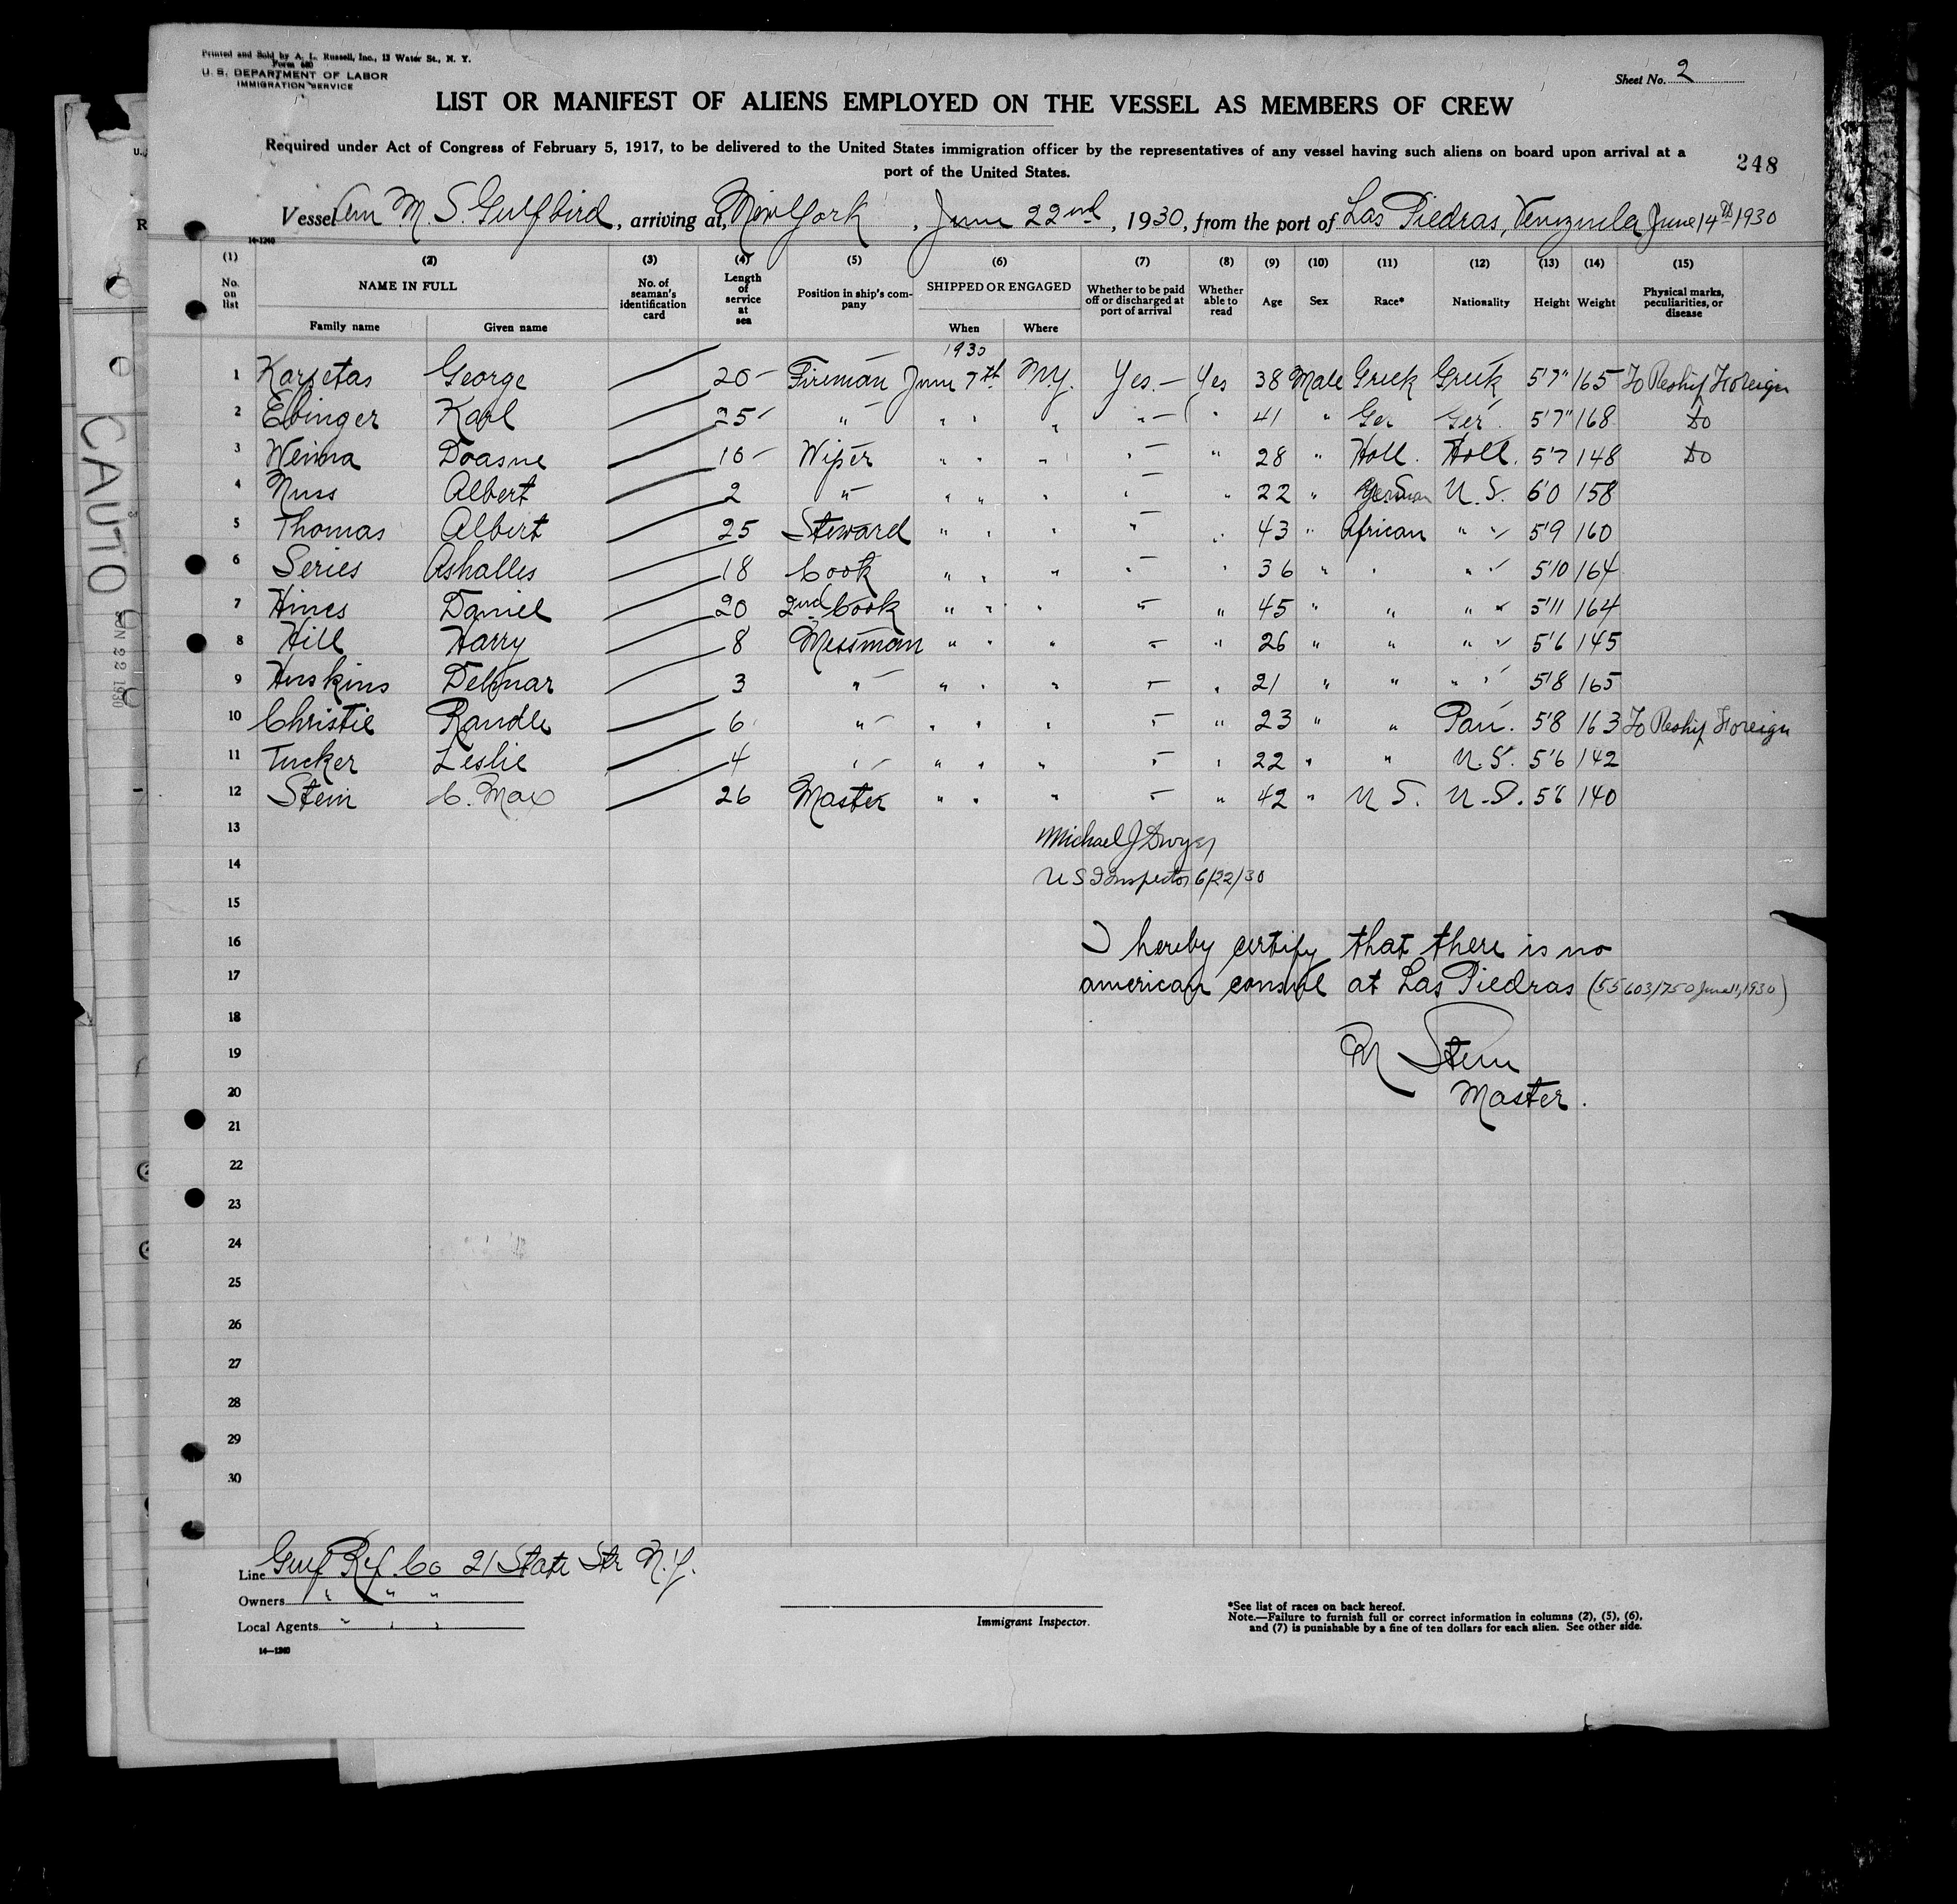 Printed and Sold by A. L. Russell, Inc., 12 Water St., N. Y.
Form 680
U. S. DEPARTMENT OF LABOR
IMMIGRATION SERVICE
Sheet No. 2
LIST OR MANIFEST OF ALIENS EMPLOYED ON THE VESSEL AS MEMBERS OF CREW
Required under Act of Congress of February 5, 1917, to be delivered to the United States immigration officer by the representatives of any vessel having such aliens on board upon arrival at a
port of the United States.
248
Vessel Am M. S. Gulfbird, arriving at New York, June 22nd, 1930, from the port of Las Piedras, Venezuela June 14th 1930
14-1240
(1) (2) (3) (4) (5) (6) (7) (8) (9) (10) (11) (12) (13) (14) (15)
No. on list NAME IN FULL Family name Given name No. of seaman's identification card Length of service at sea Position in ship's company SHIPPED OR ENGAGED When Where Whether to be paid off or discharged at port of arrival Whether able to read Age Sex Race* Nationality Height Weight Physical marks, peculiarities, or disease
1930
1 George 20 - Fireman June 7th N.Y. Yes. - Yes 38 Male Greek Greek 5'7" 165 To Reship Foreign
2 Ebinger Karl 25 - " " " " " - " 41 " Ger Ger 5'7" 168 Do
3 Doasne 10 - Wiper " " " " - " 28 " Holl. Holl. 5'7 148 Do
4 Nuss Albert 2 " " " " " - " 22 " German U.S. 6'0 158
5 Thomas Albert 25 Steward " " " " - " 43 " African " " 5'9 160
6 Series Ashalles 18 Cook " " " " - " 36 " " " 5'10 164
7 Hines Daniel 20 2nd Cook " " " " - " 45 " " " 5'11 164
8 Hill Harry 8 Messman " " " - " 26 " " " 5'6 145
9 Huskins Delmar 3 " " " " - " 21 " " " 5'8 165
10 Christie Randle 6 " " " " - " 23 " " Pan. 5'8 163 To Reship Foreign
11 Tucker Leslie 4 " " " " - " 22 " " U.S. 5'6 142
12 Stein C. Max 26 Master " " " - " 42 " U S. U.S. 5'6 140
13 Michael J Dwyer
14 U S I Inspector 6/22/30
15
16 I hereby certify that there is no
17 american consul at Las Piedras (55603/750 June 11, 1930)
18
19 M Stein
20 Master.
21
22
23
24
25
26
27
28
29
30
Line Gulf Ref. Co 21 State Str N.Y.
Owners " " "
Local Agents " " "
14-1240
Immigrant Inspector.
*See list of races on back hereof.
Note.—Failure to furnish full or correct information in columns (2), (5), (6),
and (7) is punishable by a fine of ten dollars for each alien. See other side.
CAUTO
JUN 22 1930